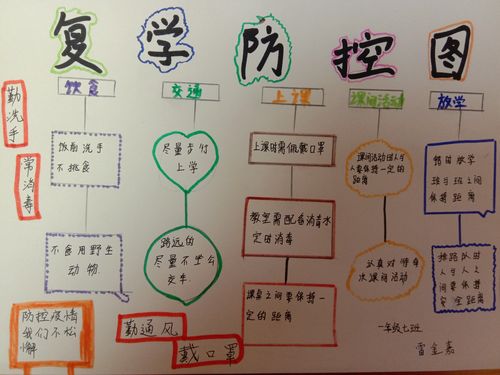 复学防控图
饮食
交通
上课
课间活动
放学
勤洗手
常消毒
饭前洗手
不挑食
不食用野生
动物.
防控疫情
我们不松
懈
尽量步行
上学
路远的
尽量不坐公
交车.
勤通风
戴口罩
上课时需佩戴口罩
教室需配备消毒水
定时消毒
课桌之间要保持一
定的距离
课间活动时人与
人要保持一定的
距离
认真对待每
次课间活动
错峰放学
班与班之间
保持距离
排路队时
人与人之
间要保持
安定距离
一年级七班